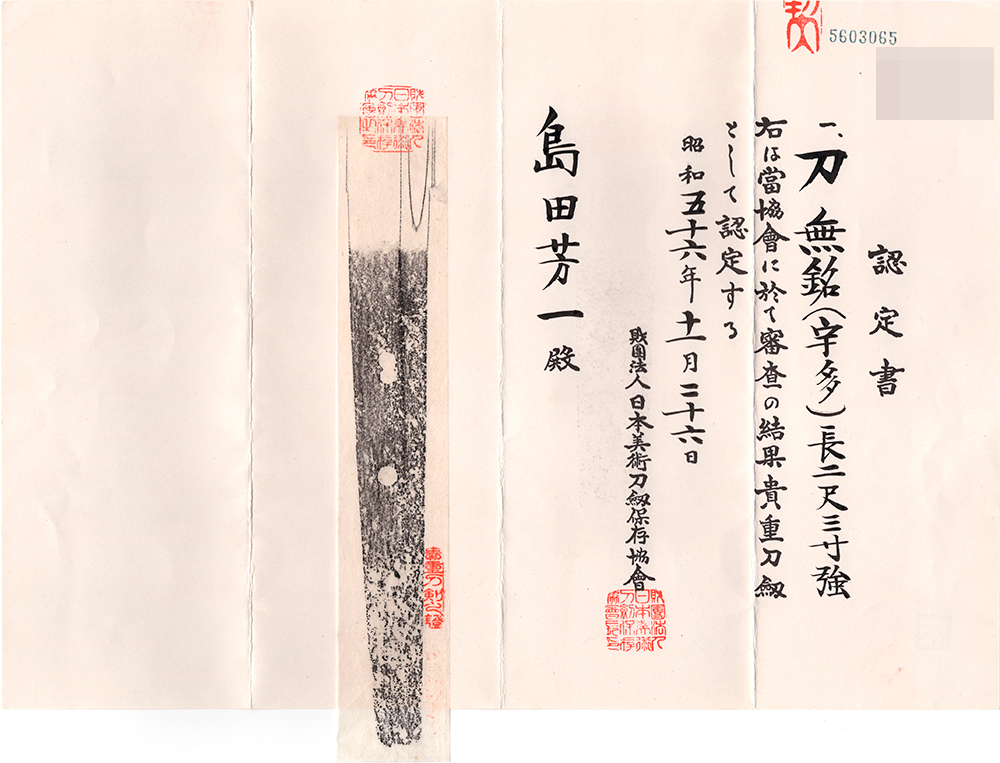 5603065
認定書
一、刀 無銘(宇多)長二尺三寸強
右は當協會に於て審査の結果貴重刀劔
として認定する
昭和五十六年十一月二十六日
財團法人日本美術刀劔保存協會
島田芳一殿